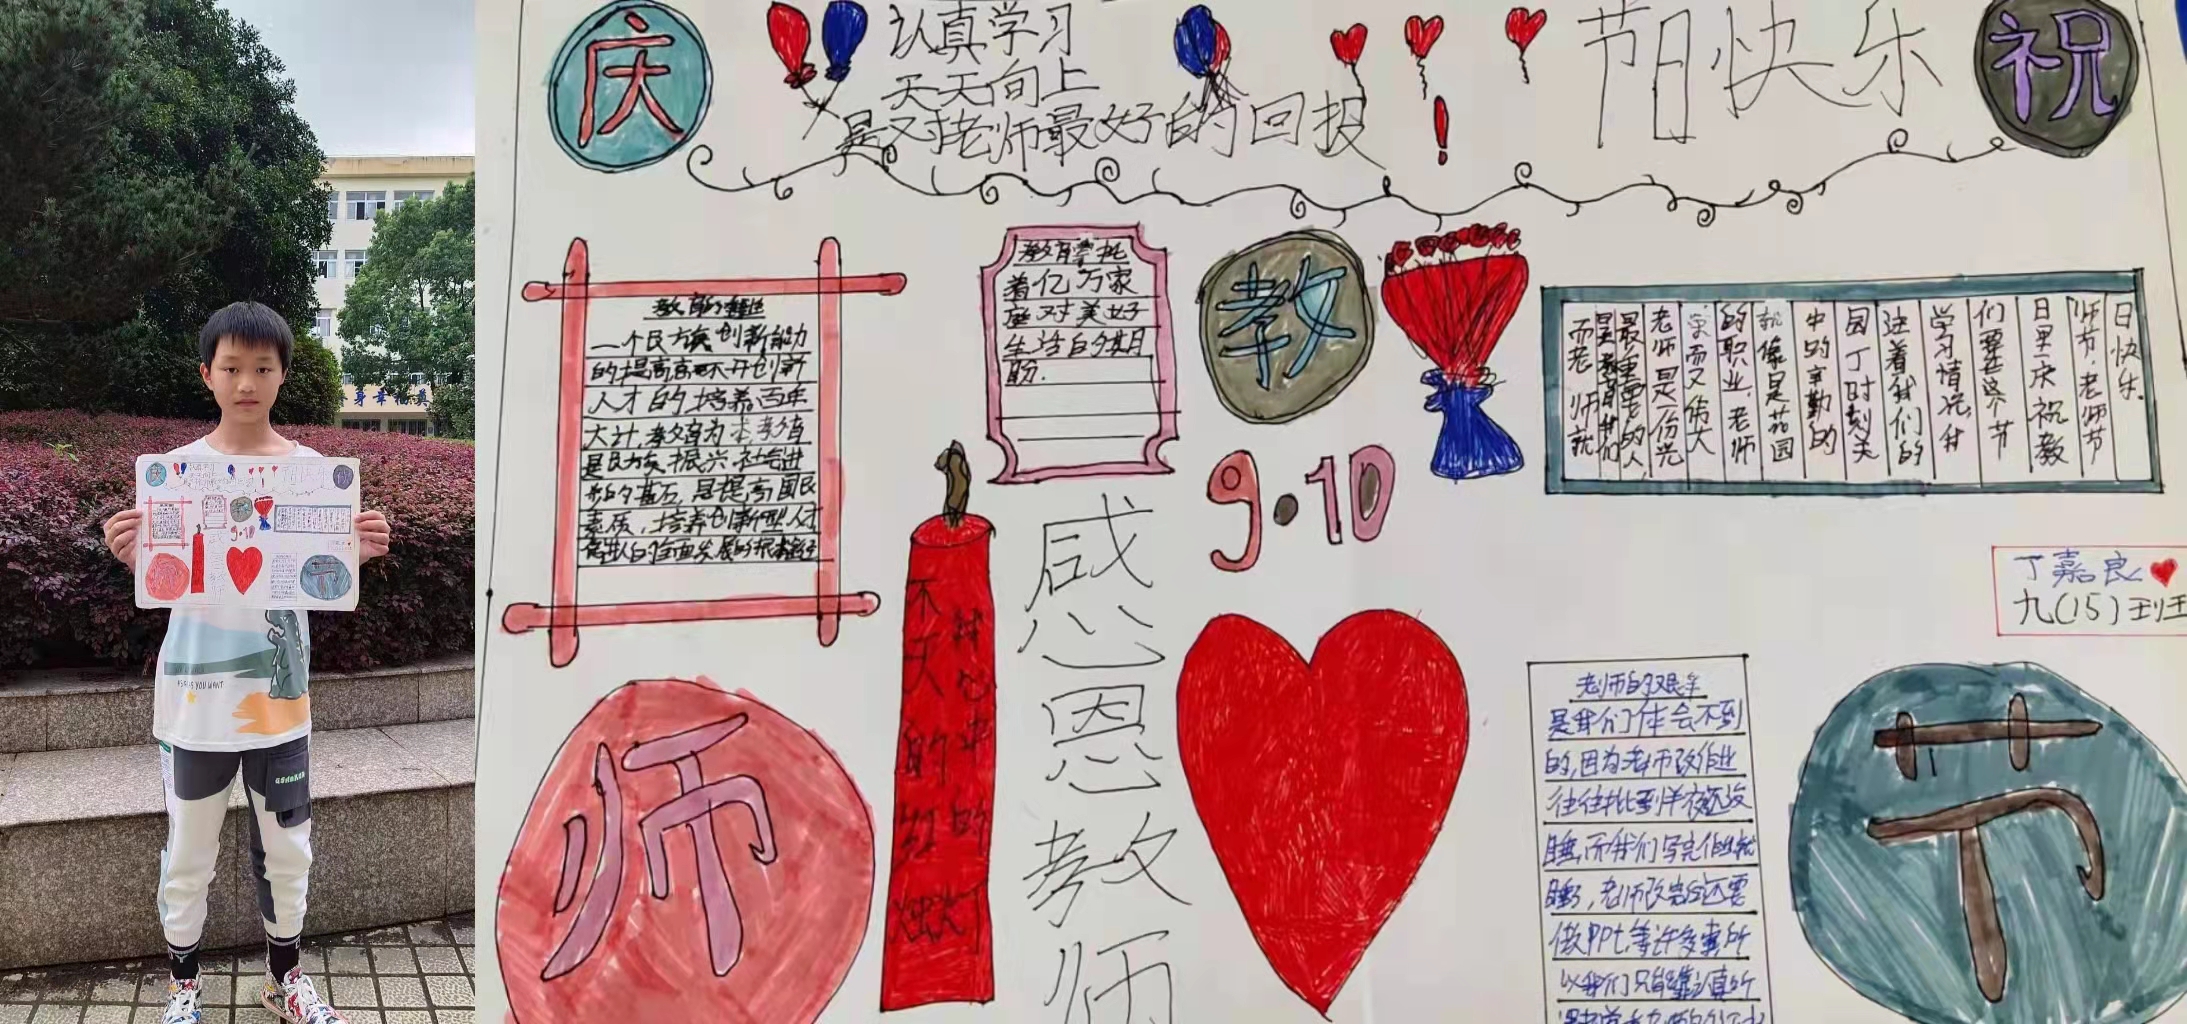 庆
认真学习
天天向上
是对老师最好的回报
!
节日快乐
祝
教育的重要性
一个民族创新能力
的提高离不开创新
人才的培养百年
大计,教育为本,教育
是民族振兴、社会进
步的基石,是提高国民
素质,培养创新型人才
教育掌托
着亿万家
庭对美好
生活的期
盼.
教
9·10
日快乐.
师节·老师节
日里,庆祝教
们要在这个节
学习情况,我
注着我们的
园丁时刻关
中的辛勤的
就像是花园
的职业.老师
荣而又伟大
老师是一份光
最重要的人,
是教育我们
而老师就
丁嘉良
九(15)班
我心中的
不灭的红烛灯
感恩教师
师
老师的艰辛
是我们体会不到
的,因为老师改作业
往往批到半夜还没
睡,而我们写完作业就
睡了,老师改完后还要
做PPt等许多事,所
以我们只能靠认真听
节
AS YOU WANT